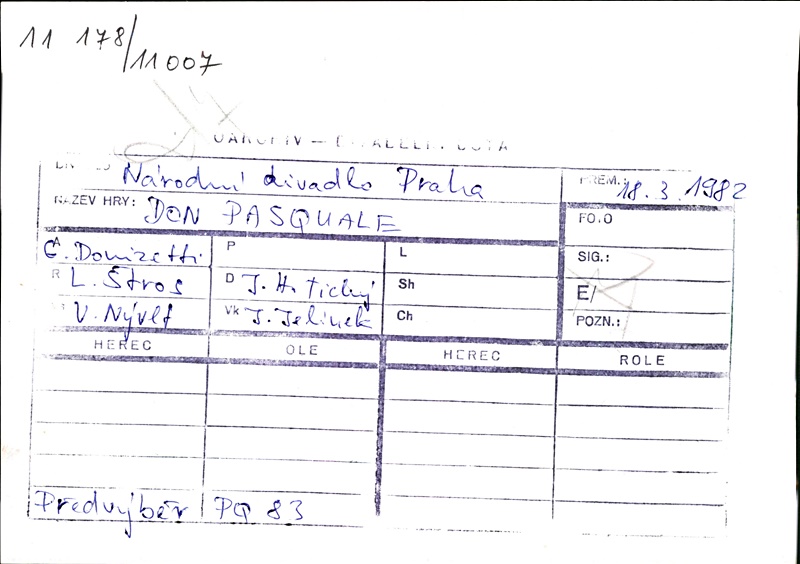 11 178/11007
Národní divadlo Praha
PREM.: 18. 3. 1982
NÁZEV HRY: DON PASQUALE
FO.O
A G. Donizetti
P
L
SIG.:
R L. Štros
D J. H. Tichý
Sh
E/
V. Nývlt
Vk J. Jelínek
Ch
POZN.:
HEREC OLE HEREC ROLE
Předvýběr PQ 83